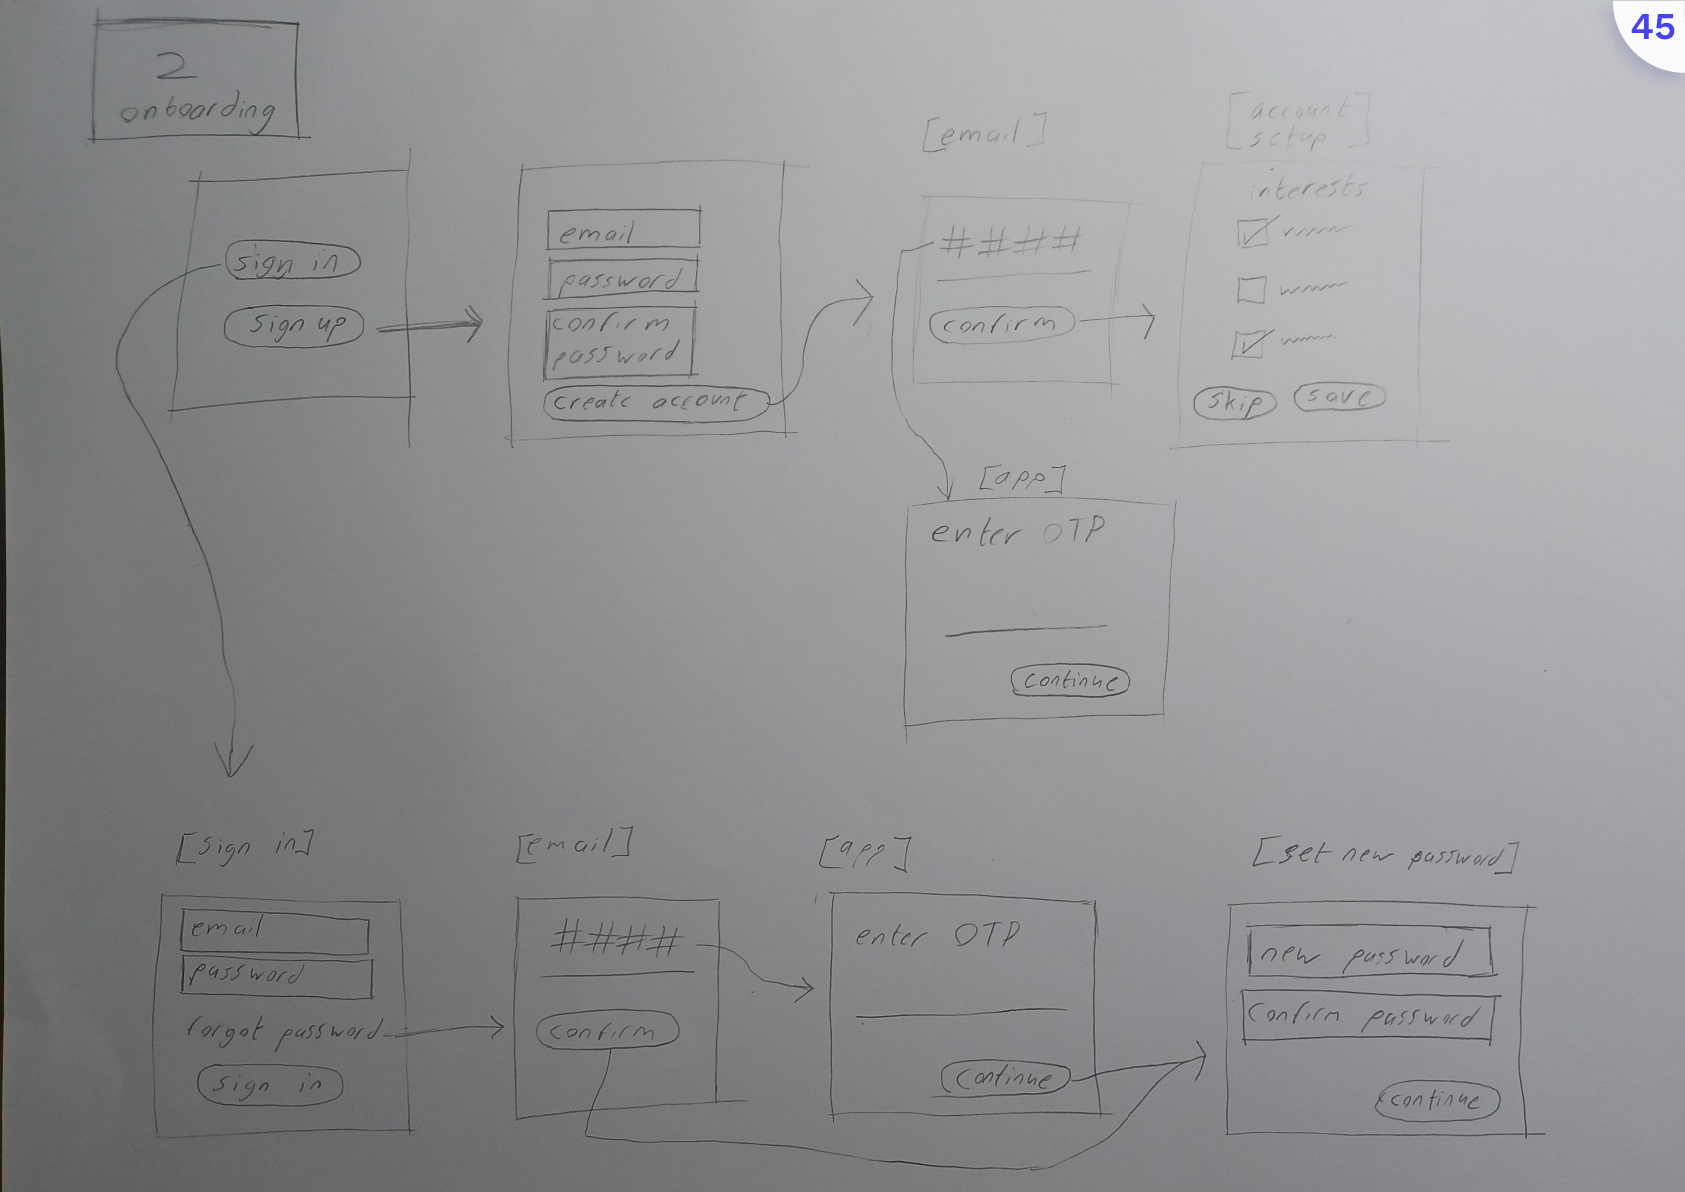 45
2
onboarding
sign in
sign up
email
password
confirm
password
create account
[email]
####
confirm
[account
setup]
interests
skip
save
[app]
enter OTP
continue
[sign in]
email
password
forgot password
sign in
[email]
####
confirm
[app]
enter OTP
continue
[set new password]
new password
confirm password
continue